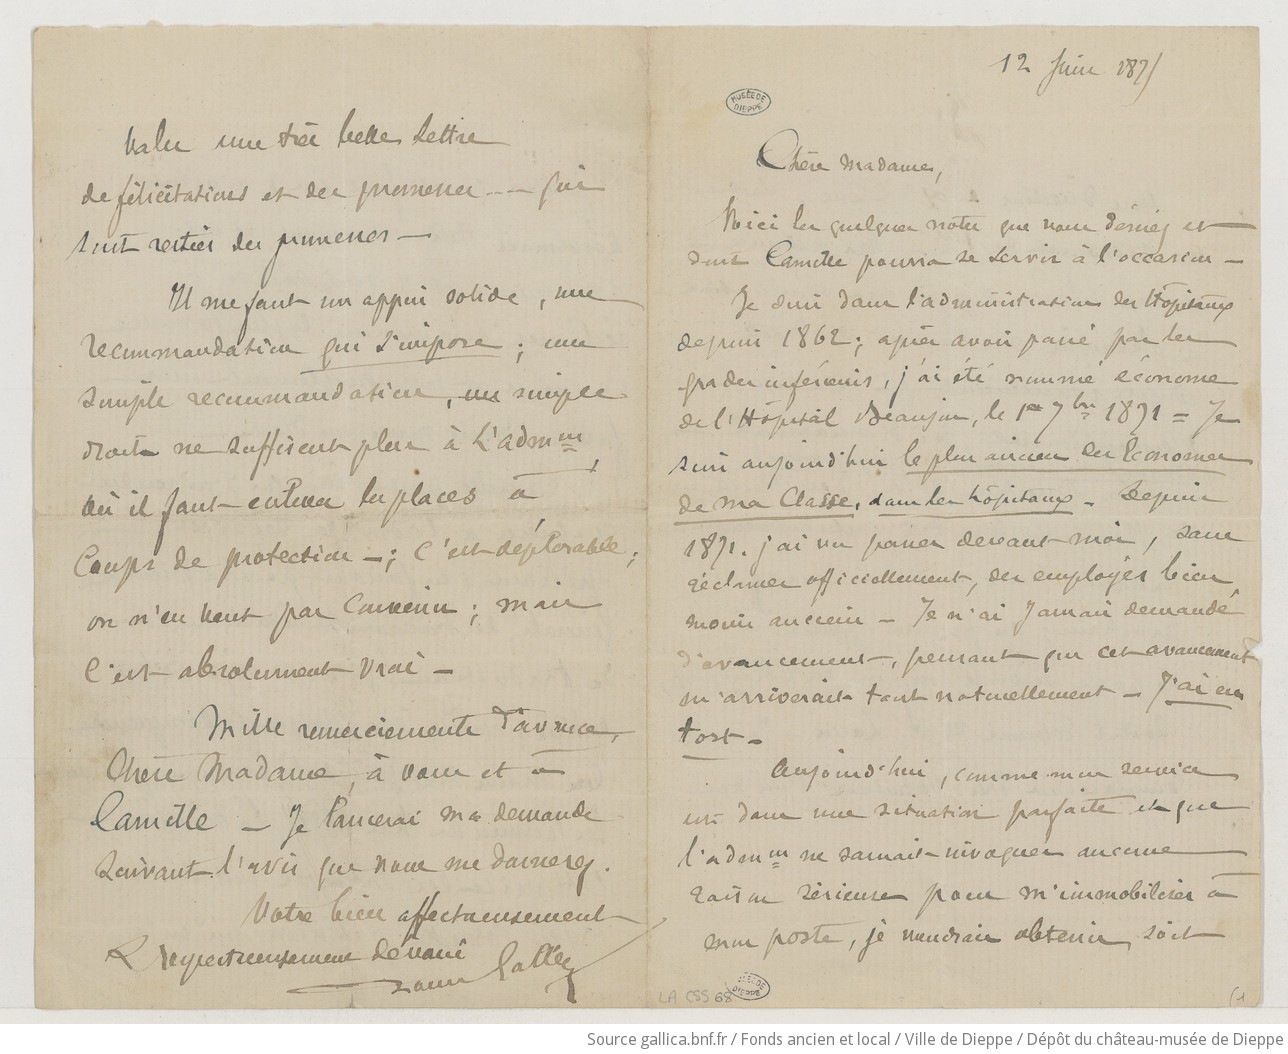 12 Juin 187
MUSÉE DE DIEPPE
Chère Madame,
Voici les quelques notes que vous désirez et
dont Camille pourra se servir à l'occasion –
Je suis dans l'administration des Hôpitaux
depuis 1862 ; après avoir passé par les
grades inférieurs, j'ai été nommé économe
de l'Hôpital Beaujon, le 1er 7bre 1871 = Je
suis aujourd'hui le plus ancien des Economes
de ma Classe, dans les hôpitaux – Depuis
1871. j'ai vu passer devant moi, sans
réclamer officiellement, des employés bien
moins anciens – Je n'ai jamais demandé
d'avancement, pensant que cet avancement
m'arriverait tout naturellement – J'ai eu
tort –
Aujourd'hui, comme mon service
est dans une situation parfaite et que
l'admon ne saurait invoquer aucune
raison sérieuse pour m'immobiliser à
mon poste, je voudrais obtenir, soit
LA CSS 68
MUSÉE DE DIEPPE
(1
valu une très belle lettre
de félicitations et des promesses --- qui
sont restées des promesses –
Il me faut un appui solide, une
recommandation qui s'impose ; une
simple recommandation, un simple
droit ne suffisent plus à l'admon,
où il faut enlever les places à
Coups de protection – ; C'est déplorable ;
on n'en veut pas Convenir ; mais
C'est absolument vrai –
Mille remerciements d'avance,
Chère Madame, à vous et à
Camille – Je lancerai ma demande
suivant l'avis que vous me donnerez.
Votre bien affectueusement
& respectueusement dévoué
Source gallica.bnf.fr / Fonds ancien et local / Ville de Dieppe / Dépôt du château-musée de Dieppe